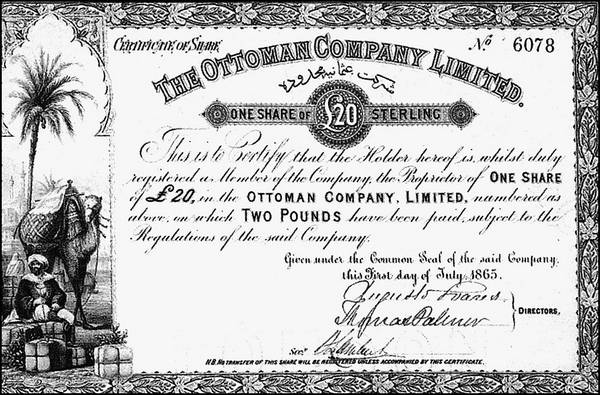 Certificate of Share.
No 6078
THE OTTOMAN COMPANY LIMITED.
شركت عثمانيه محدوده
ONE SHARE OF £20 STERLING
This is to Certify that the Holder hereof is, whilst duly
registered a Member of the Company, the Proprietor of ONE SHARE
of £20, in the OTTOMAN COMPANY, LIMITED, numbered as
above, on which TWO POUNDS have been paid, subject to the
Regulations of the said Company.
Given under the Common Seal of the said Company,
this First day of July 1865.
Thomas Palmer
DIRECTORS.
Secy
N.B. NO TRANSFER OF THIS SHARE WILL BE REGISTERED UNLESS ACCOMPANIED BY THIS CERTIFICATE.